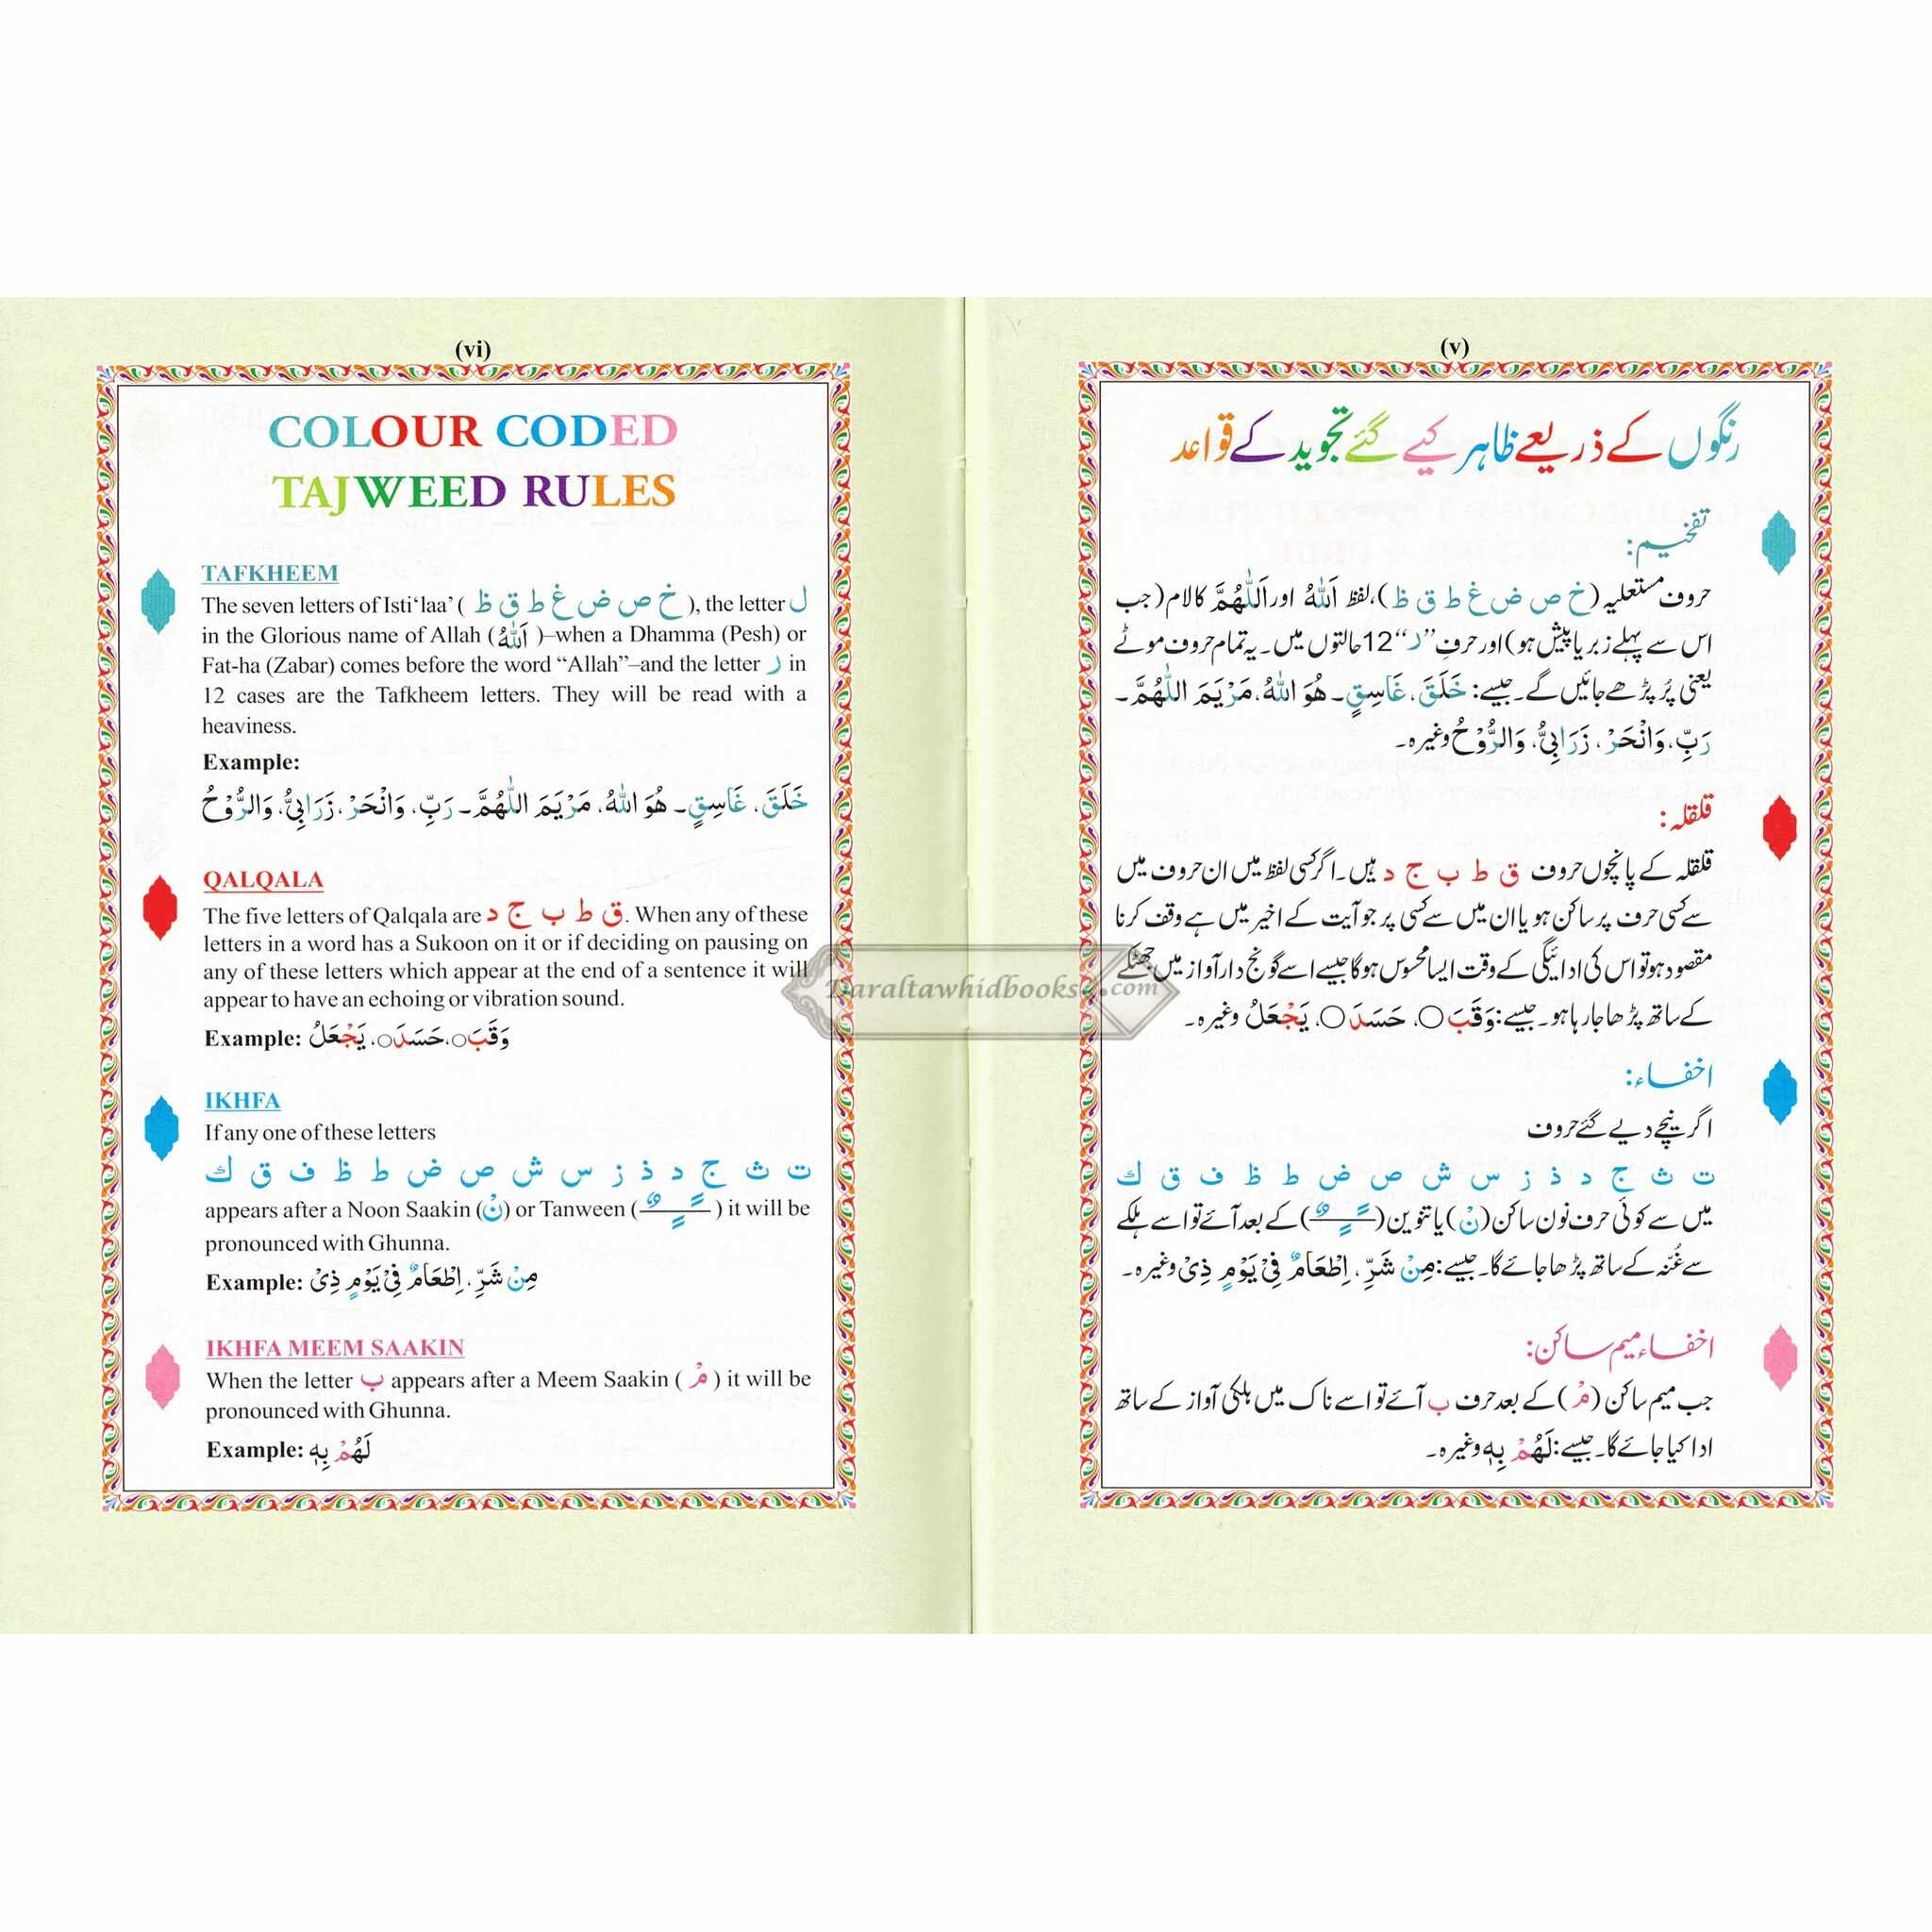 (vi)
COLOUR CODED
TAJWEED RULES
TAFKHEEM
The seven letters of Isti‘laa’ ( خ ص ض غ ط ق ظ ), the letter ل
in the Glorious name of Allah ( اَللّٰهُ )–when a Dhamma (Pesh) or
Fat-ha (Zabar) comes before the word “Allah”–and the letter ر in
12 cases are the Tafkheem letters. They will be read with a
heaviness.
Example:
خَلَقَ، غَاسِقٍ۔ هُوَ اللّٰهُ، مَرْيَمَ اللّٰهُمَّ۔ رَبِّ، وَانْحَرْ، زَرَابِيُّ، وَالرُّوْحُ
QALQALA
The five letters of Qalqala are ق ط ب ج د. When any of these
letters in a word has a Sukoon on it or if deciding on pausing on
any of these letters which appear at the end of a sentence it will
appear to have an echoing or vibration sound.
Example: وَقَبَ○، حَسَدَ○، يَجْعَلُ
IKHFA
If any one of these letters
ت ث ج د ذ ز س ش ص ض ط ظ ف ق ك
appears after a Noon Saakin (نْ) or Tanween ( ـًـٍـٌ ) it will be
pronounced with Ghunna.
Example: مِنْ شَرِّ، اِطْعَامٌ فِيْ يَوْمٍ ذِيْ
IKHFA MEEM SAAKIN
When the letter ب appears after a Meem Saakin ( مْ ) it will be
pronounced with Ghunna.
Example: لَهُمْ بِهٖ
(v)
رنگوں کے ذریعے ظاہر کیے گئے تجوید کے قواعد
تفخیم:
حروف مستعلیہ (خ ص ض غ ط ق ظ)، لفظ اَللّٰهُ اور اَللّٰهُمَّ کا لام (جب
اس سے پہلے زبر یا پیش ہو) اور حرفِ ”ر“ 12 حالتوں میں۔ یہ تمام حروف موٹے
یعنی پُر پڑھے جائیں گے۔ جیسے: خَلَقَ، غَاسِقٍ۔ هُوَ اللّٰهُ، مَرْيَمَ اللّٰهُمَّ۔
رَبِّ، وَانْحَرْ، زَرَابِيُّ، وَالرُّوْحُ وغیرہ۔
قلقلہ:
قلقلہ کے پانچوں حروف ق ط ب ج د ہیں۔ اگر کسی لفظ میں ان حروف میں
سے کسی حرف پر ساکن ہو یا ان میں سے کسی پر جو آیت کے اخیر میں ہے وقف کرنا
مقصود ہو تو اس کی ادائیگی کے وقت ایسا محسوس ہوگا جیسے اسے گونج دار آواز میں جھٹکے
کے ساتھ پڑھا جا رہا ہو۔ جیسے: وَقَبَ○، حَسَدَ○، يَجْعَلُ وغیرہ۔
اخفاء:
اگر نیچے دیے گئے حروف
ت ث ج د ذ ز س ش ص ض ط ظ ف ق ك
میں سے کوئی حرف نون ساکن (نْ) یا تنوین ( ـًـٍـٌ ) کے بعد آئے تو اسے ہلکے
سے غُنّہ کے ساتھ پڑھا جائے گا۔ جیسے: مِنْ شَرِّ، اِطْعَامٌ فِيْ يَوْمٍ ذِيْ وغیرہ۔
اخفاء میم ساکن:
جب میم ساکن (مْ) کے بعد حرف ب آئے تو اسے ناک میں ہلکی آواز کے ساتھ
ادا کیا جائے گا۔ جیسے: لَهُمْ بِهٖ وغیرہ۔
Daraltawhidbooks.com